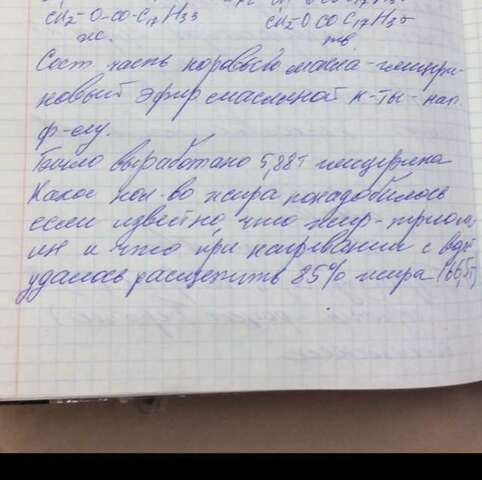 CH₂-O-CO-C₁₇H₃₃ CH₂-O CO C₁₇H₃₅
ж. тв
Сост. часть коровьего масла - глицери-
новый эфир масляной к-ты - нап.
ф-олу.
Было выработано 5,88т глицерина
Какое кол-во жира понадобилось
если известно, что жир - триола,
ин и что при нагревании с вдт
удалось расщепить 85% жира (66,5т)